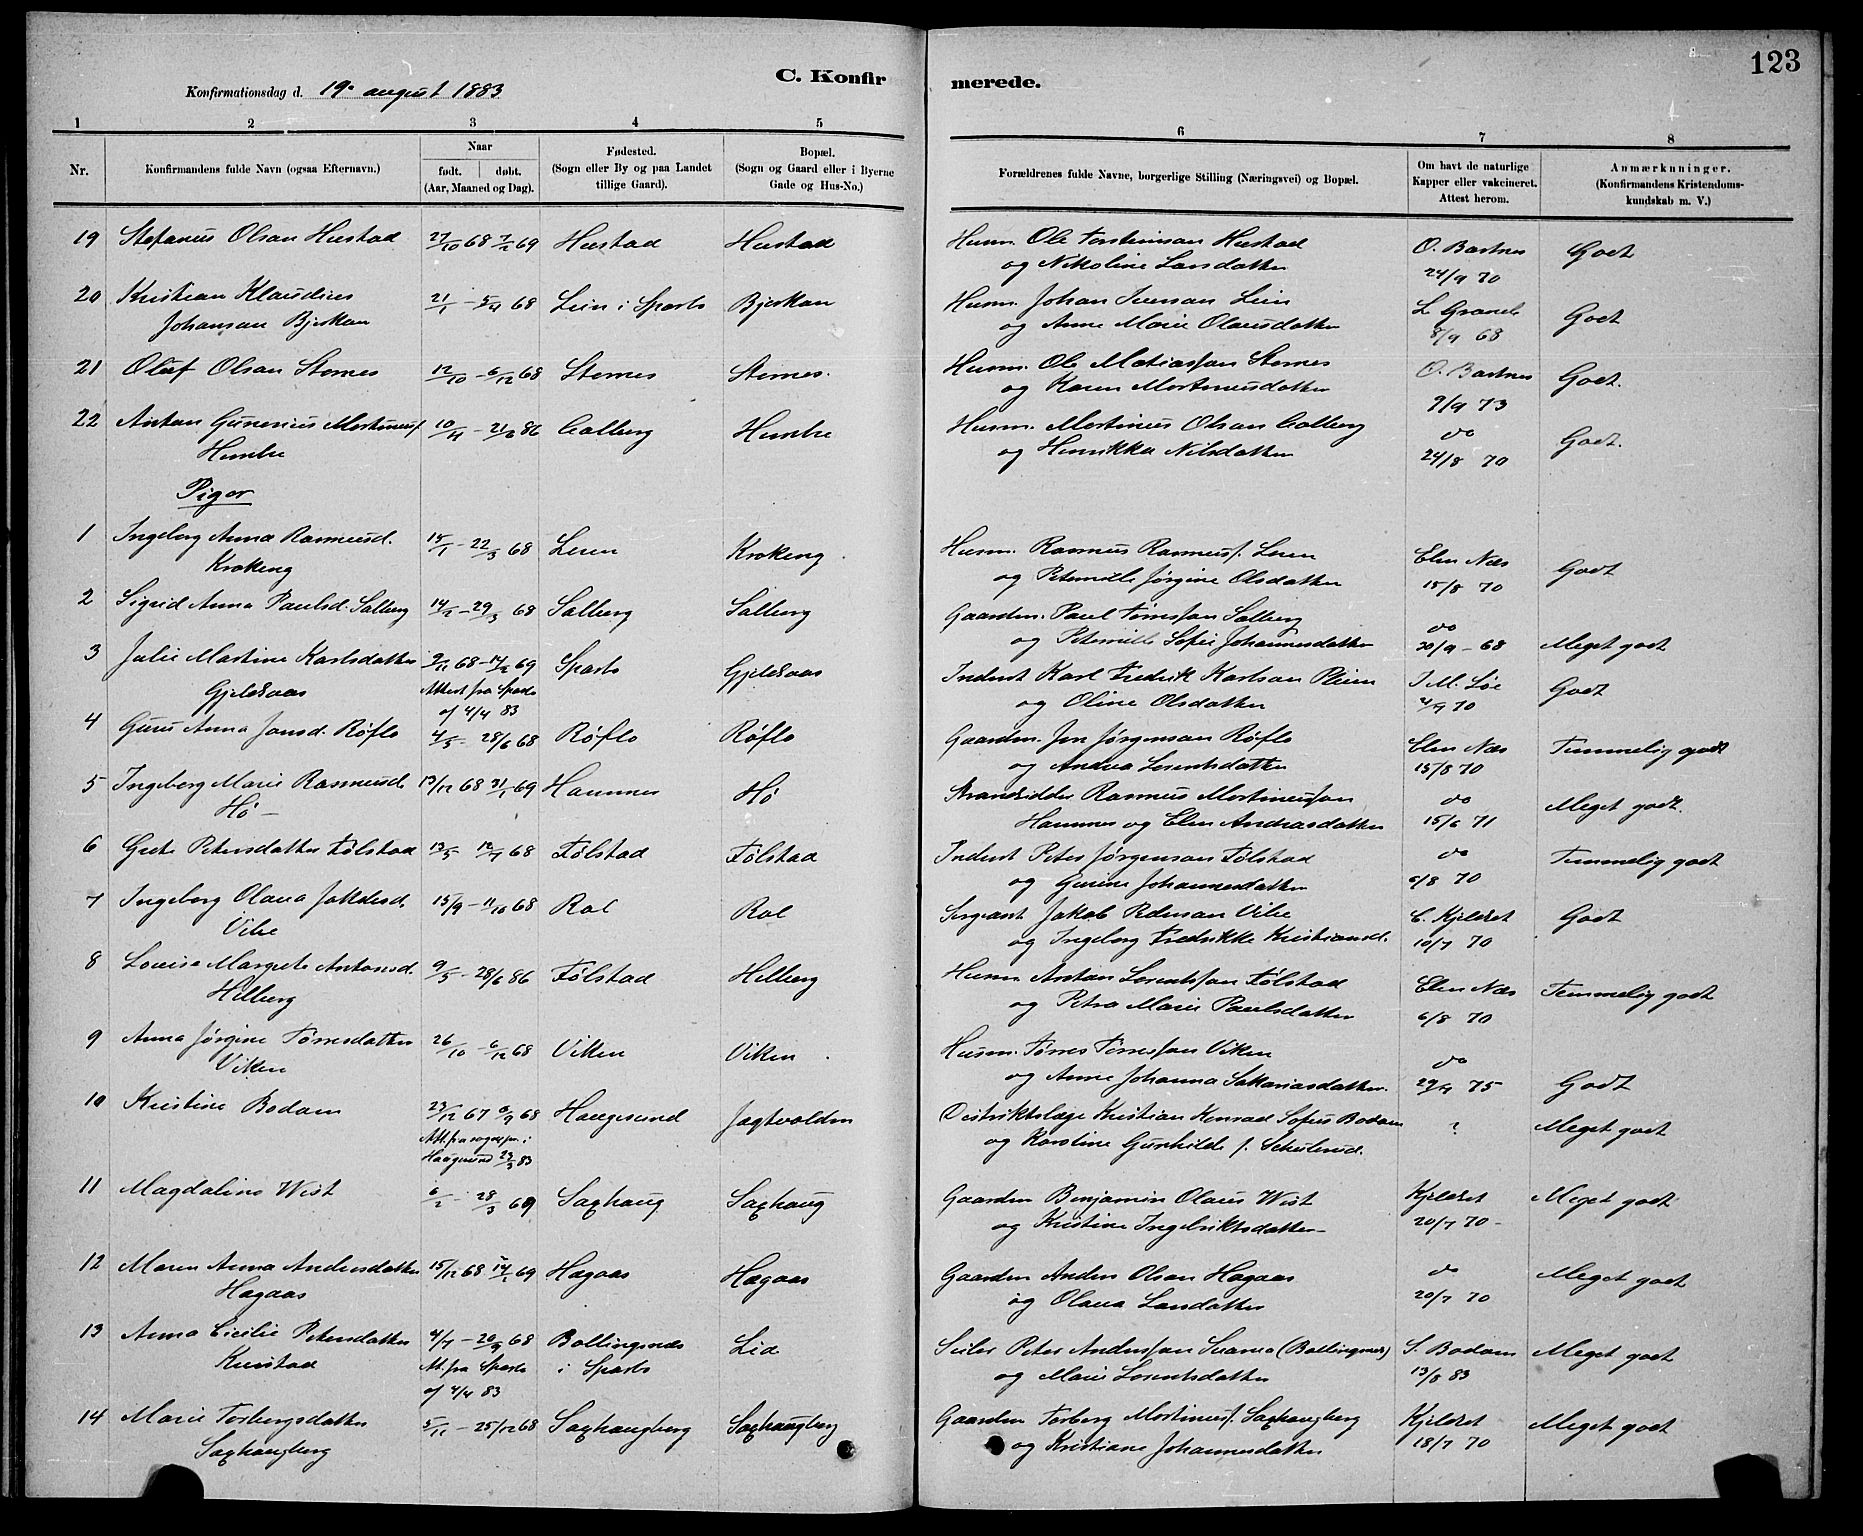 123
C. Konfirmerede.
Konfirmationsdag d. 19. august 1883
1 2 3 4 5 6 7 8
Nr.
Konfirmandens fulde Navn (ogsaa Efternavn.)
Naar
født. døbt.
(Aar, Maaned og Dag).
Fødested.
(Sogn eller By og paa Landet
tillige Gaard).
Bopæl.
(Sogn og Gaard eller i Byerne
Gade og Hus-No.)
Forældrenes fulde Navne, borgerlige Stilling (Næringsvei) og Bopæl.
Om havt de naturlige
Kapper eller vakcineret.
Attest herom.
Anmærkninger.
(Konfirmandens Kristendoms-
kundskab m. V.)
19 Stefanus Olsen Hustad 27/10 68 7/2 69 Hustad Hustad Husm. Ole Hustad O. Bartnes Godt
og Nikoline Larsdatter 24/9 70
20 Kristian Klaudius 21/1 - 5/4 68 Lein i Sparb Bjerkan Husm. Johan Iversen Lein L Grande Godt
Johansen Bjerkan og Anne Marie Olausdatter 8/9 68
21 Oluf Olsen Stornes 12/10 - 6/12 68 Stornes Stornes. Husm. Ole Matiassen Stornes O. Bartnes Godt.
og Karen Mortinusdatter 9/9 73
22 Anton Gunerius Mortinus. 10/4 - 21/6 86 Colberg Humle Husm. Mortinus Olsen Colberg do Godt.
Humle og Henrikka Nilsdatter 24/8 70
Piger
1 Ingeborg Anna Rasmusd. 15/1 - 22/3 68 Leren Krokeng Husm. Rasmus Rasmuss. Leren Elen Næs Godt
Krokeng og Peternille Jørgine Olsdatter 15/8 70
2 Sigrid Anna Paulsd. Salberg 14/2 - 29/3 68 Salberg Salberg Gaardm. Paul Tørressen Salberg do
og Peternille Sofie Johannesdatter 20/9 - 68 Meget godt
3 Julie Martine Karlsdatter 9/12 68 - 14/2 69 Sparb Gjeldsaas Inderst Karl Fredrik Karlsen I M. Løe Godt
Gjeldsaas Attest fra Sparb og Oline Olsdatter 70
of 4/4 83
4 Guru Anna Jonsd. Røflo 4/5 28/6 68 Røflo Røflo Gaardm. Jon Jørgensen Røflo Elen Næs Temmelig godt
og Andrea Lorentsdatter 15/8 70
5 Ingeborg Marie Rasmusd. 13/12 68 31/1 69 Hammer Hø Strandsidder Rasmus Mortinussen do Meget godt
Hø - Hammer og Elen Andreasdatter 15/6 71
6 Grete Petersdatter Følstad 13/5 12/7 68 Følstad Følstad Inderst Peter Jørgensen Følstad do Temmelig godt
og Gurine Johannesdatter 6/8 70
7 Ingeborg Olava Jakobsd. 15/9 - 11/10 68 Rol Rol Sergeant Jakob Pedersen Vibe C. Kjeldset Godt
Vibe og Ingeborg Fredrikke Kristiansd. 10/7 70
8 Louise Margrete Antonsd. 9/5 - 28/6 86 Følstad Helberg Husm. Anton Lorentssen Følstad Elen Næs Temmelig godt
Helberg og Petra Marie Paulsdatter 6/8 70
9 Anna Jørgine Tørresdatter 26/10 - 6/12 68 Viken Viken Husm. Tørres Tørressen Viken do
Viken og Anne Johanna Sakariasdatter. 75 Godt
10 Kristine Bodom 23/12 67 68 Haugesund Jagtvolden Distriktslæge Kristian Konrad Sofus Bodom ? Meget godt
Att. fra sognepr. i og Karoline Gunhilde f. Schulerud.
Haugesund 83
11 Magdaline Wist 6/2 - 28/3 69 Saxhaug Saxhaug Gaardm Benjamin Olaus Wist Kjeldset Meget godt
og Kristine Ingebriktsdatter - 20/7 70 -
12 Maren Anna Andersdatter 15/12 68 17/1 69 Hagaas Hagaas Gaardm Anders Olsen Hagaas do Meget godt
Hagaas og Olava Larsdatter 20/7 70
13 Anna Cicilie Petersdatter 4/7 - 20/9 68 Bollingsnæs Lid Seiler Peter Anderssen (Bollingsnæs) S. Bodom Meget godt
Att. fra Sparb i Sparb og Marie Lorentsdatter 13/8 83
of 4/4 83
14 Marie Torbergsdatter 5/11 - 25/12 68 Saxhaugberg Saxhaugberg Gaardm Torberg Mortinuss. Saxhaugberg Kjeldset Meget godt
Saxhaugberg og Kristiane Johannesdatter 18/7 70